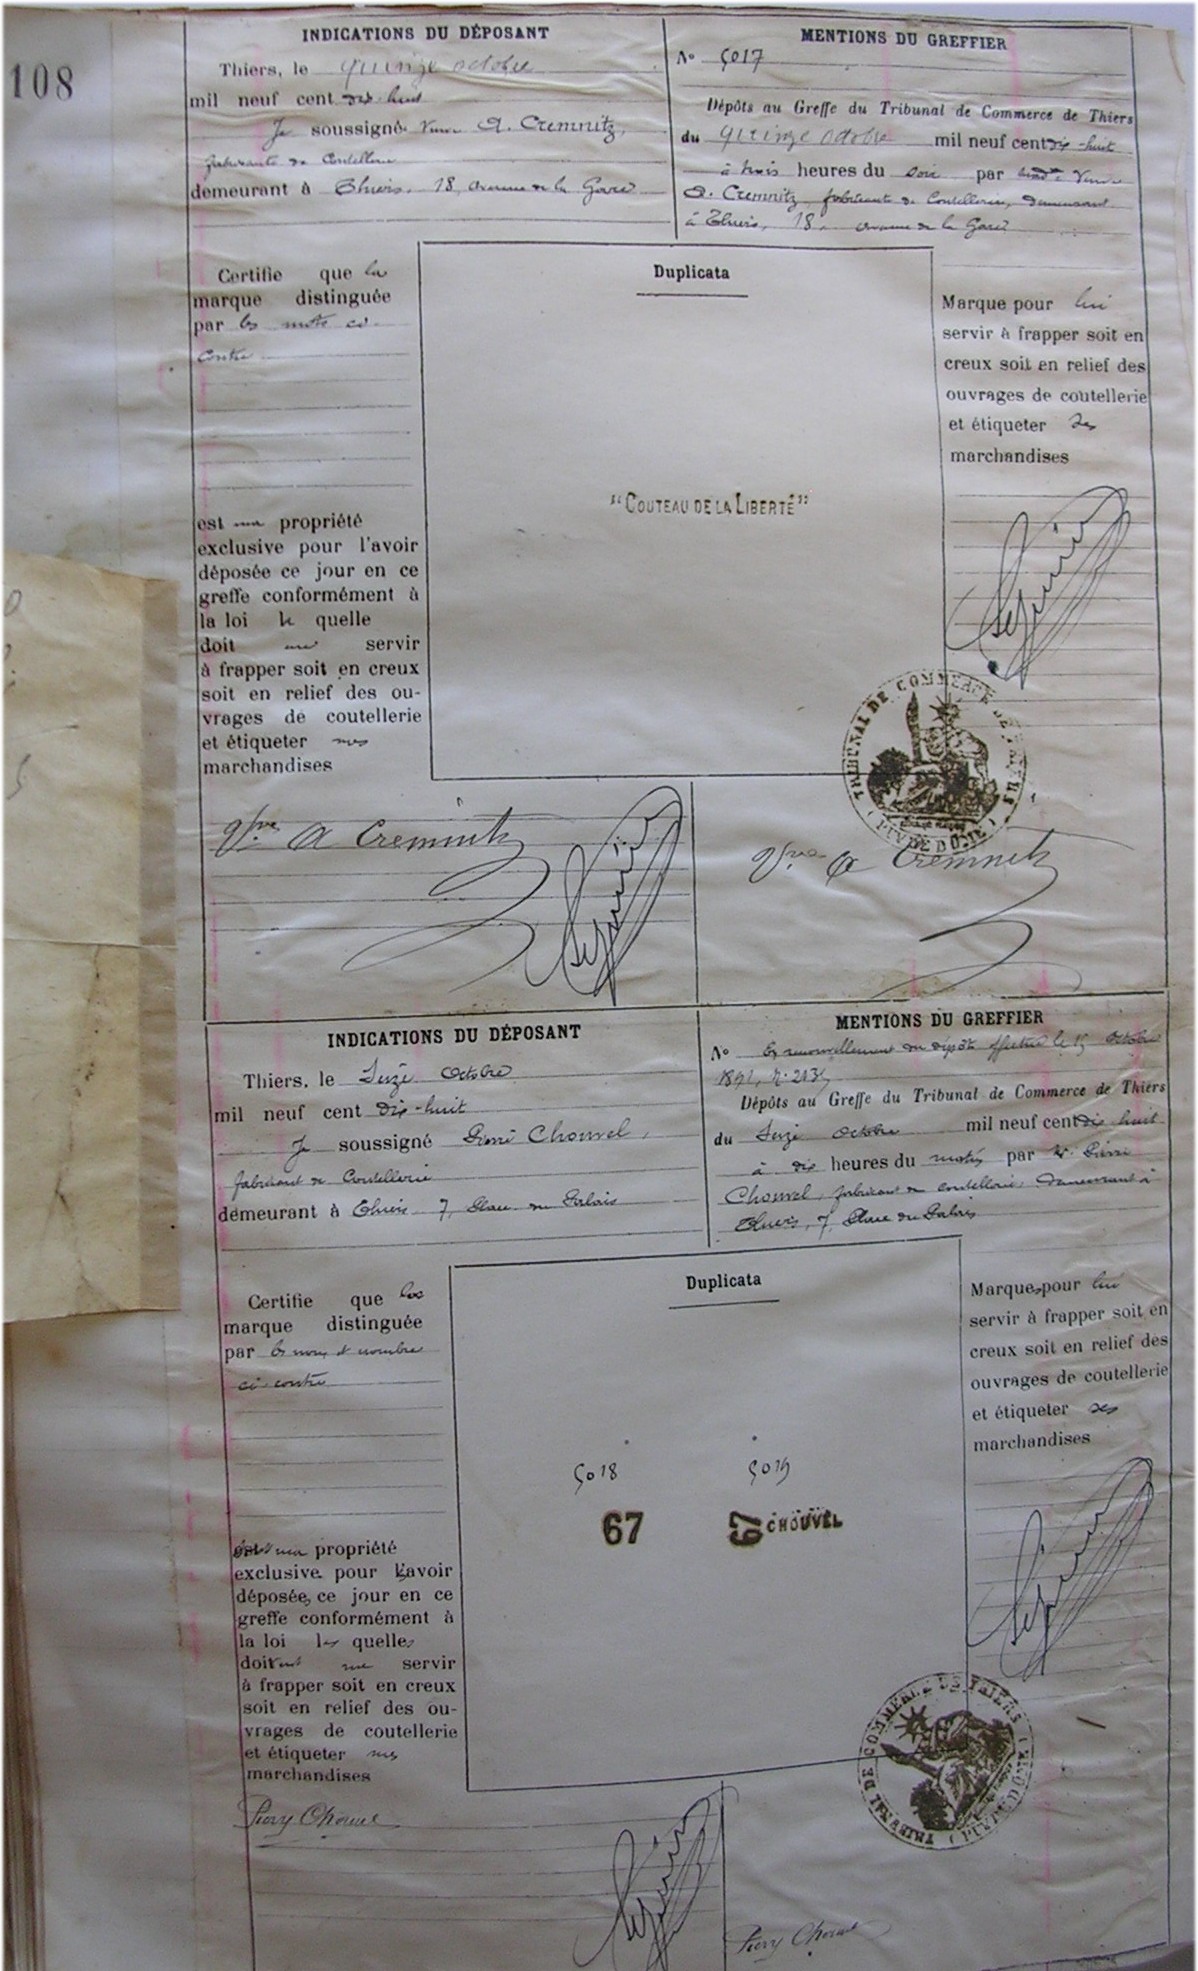 108
INDICATIONS DU DÉPOSANT
Thiers, le quinze octobre
mil neuf cent dix-huit
Je soussigné Veuve A. Cremnitz,
fabricante de Coutellerie
demeurant à Thiers, 18, avenue de la Gare
MENTIONS DU GREFFIER
N° 5017
Dépôts au Greffe du Tribunal de Commerce de Thiers
du quinze octobre mil neuf cent dix-huit
à trois heures du soir par Veuve
A. Cremnitz, fabricante de Coutellerie, demeurant
à Thiers, 18, avenue de la Gare
Certifie que la
marque distinguée
par les mots ci-
contre
est ma propriété
exclusive pour l'avoir
déposée ce jour en ce
greffe conformément à
la loi la quelle
doit me servir
à frapper soit en creux
soit en relief des ou-
vrages de coutellerie
et étiqueter mes
marchandises
Duplicata
"COUTEAU DE LA LIBERTÉ"
Marque pour lui
servir à frapper soit en
creux soit en relief des
ouvrages de coutellerie
et étiqueter ses
marchandises
TRIBUNAL DE COMMERCE DE THIERS
(PUY DE DÔME)
Vve A Cremnitz
Vve A Cremnitz
INDICATIONS DU DÉPOSANT
Thiers, le Seize Octobre
mil neuf cent dix-huit
Je soussigné Pierre Chouvel,
fabricant de Coutellerie
demeurant à Thiers, 7, Place du Palais
MENTIONS DU GREFFIER
N° En renouvellement du dépôt effectué le 15 Octobre
Dépôts au Greffe du Tribunal de Commerce de Thiers
du Seize octobre mil neuf cent dix huit
à dix heures du matin par M. Pierre
Chouvel, fabricant de coutellerie, demeurant à
Thiers, 7, Place du Palais
Certifie que les
marque distinguée
par les noms et nombre
ci-contre
ma propriété
exclusive pour l'avoir
déposées ce jour en ce
greffe conformément à
la loi les quelles
doivent me servir
à frapper soit en creux
soit en relief des ou-
vrages de coutellerie
et étiqueter mes
marchandises
Duplicata
5018 5019
67 67 CHOUVEL
Marques pour lui
servir à frapper soit en
creux soit en relief des
ouvrages de coutellerie
et étiqueter ses
marchandises
TRIBUNAL DE COMMERCE DE THIERS
(PUY DE DÔME)
Pierry Chouvel
Pierry Chouvel